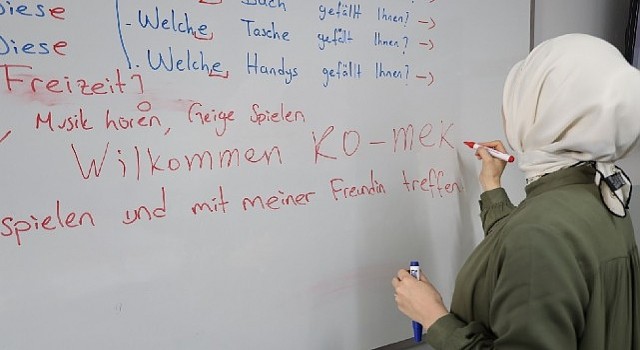 Diese
Buch gefällt Ihnen? →
- Welche Tasche gefält Ihnen? →
Diese
- Welche Handys gefällt Ihnen? →
Freizeit]
Musik hören, Geige Spielen
Wilkommen KO-MEK
spielen und mit meiner Freundin treffen.